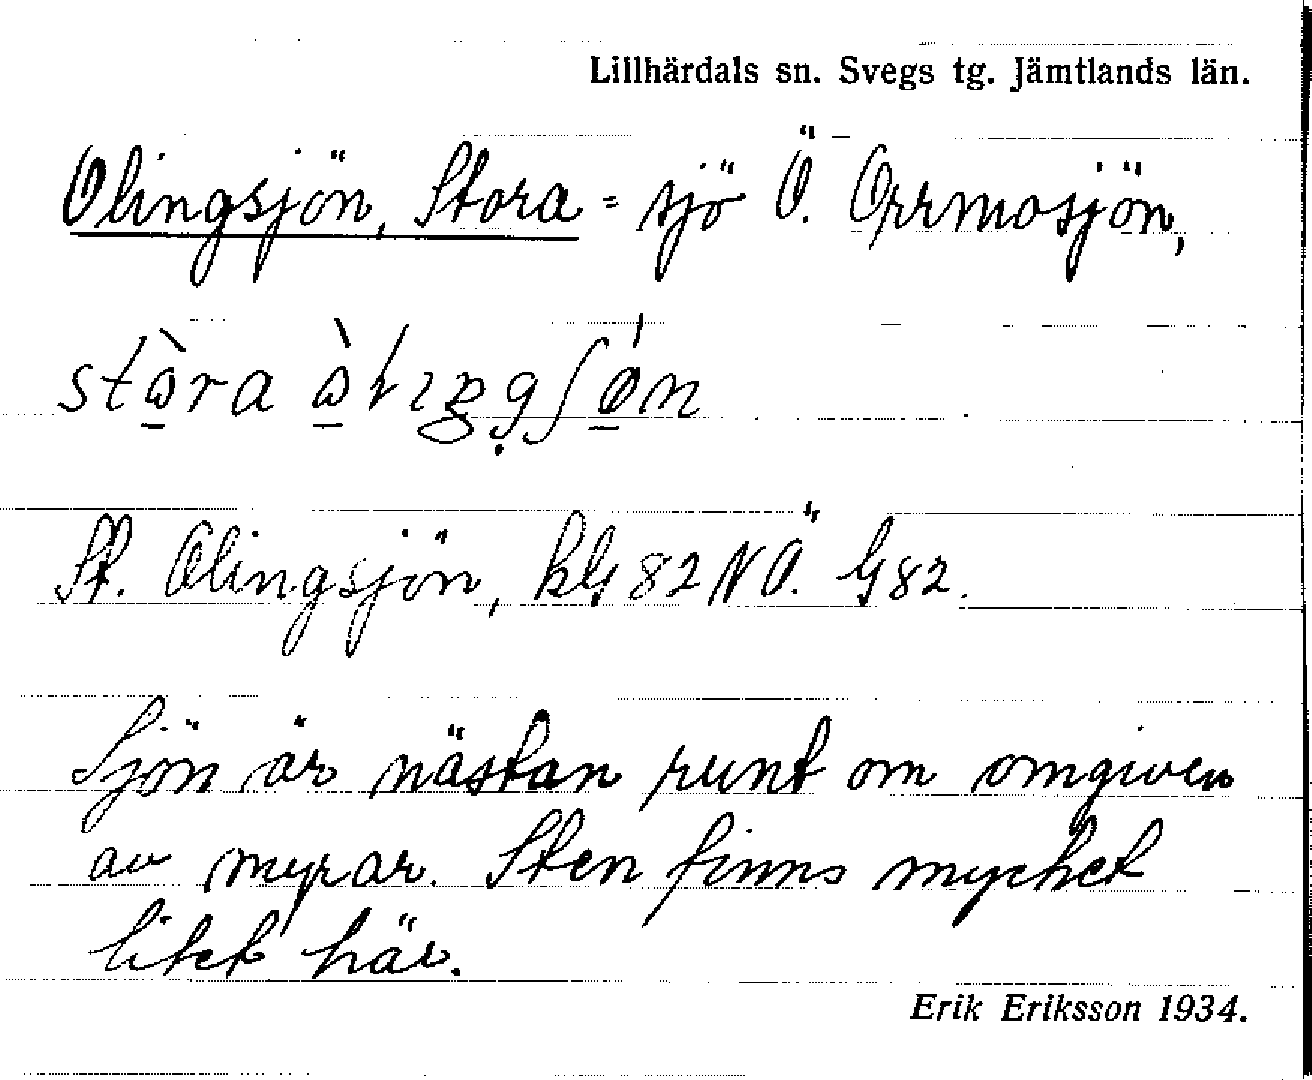 Lillhärdals sn. Svegs tg. Jämtlands län.
Olingsjön, Stora = sjö Ö. Orrmosjön,
St. Olingsjön, kbl 82 NÖ. G 82.
Sjön är nästan runt om omgiven
av myrar. Sten finns mycket
litet här.
Erik Eriksson 1934.